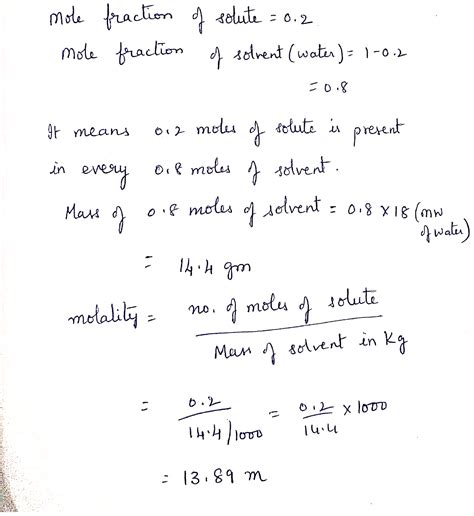 mole fraction of solute = 0.2
Mole fraction of solvent (water) = 1-0.2
= 0.8
It means 0.2 moles of solute is present
in every 0.8 moles of solvent.
Mass of 0.8 moles of solvent = 0.8 x 18 (mw of water)
= 14.4 gm
molality = no. of moles of solute / Mass of solvent in Kg
= 0.2 / 14.4/1000 = 0.2 / 14.4 x 1000
= 13.89 m